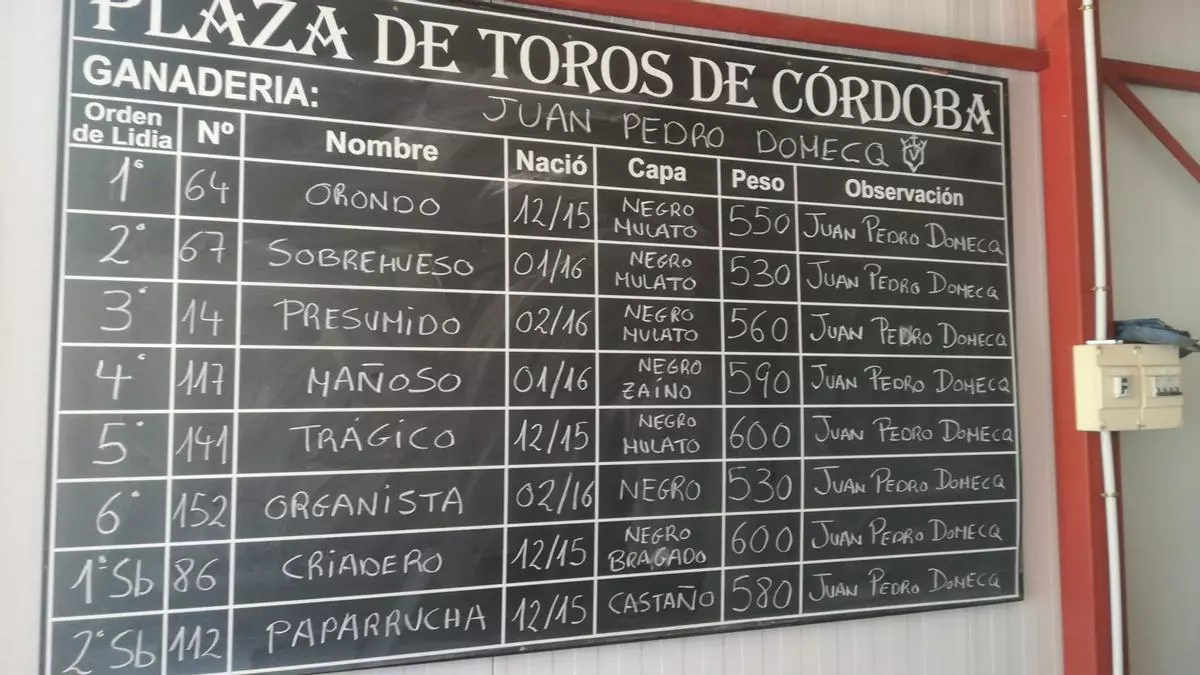 PLAZA DE TOROS DE CÓRDOBA
GANADERIA: JUAN PEDRO DOMECQ
Orden de Lidia Nº Nombre Nació Capa Peso Observación
1º 64 ORONDO 12/15 NEGRO MULATO 550 JUAN PEDRO DOMECQ
2º 67 SOBREHUESO 01/16 NEGRO MULATO 530 JUAN PEDRO DOMECQ
3º 14 PRESUMIDO 02/16 NEGRO MULATO 560 JUAN PEDRO DOMECQ
4º 117 MAÑOSO 01/16 NEGRO ZAÍNO 590 JUAN PEDRO DOMECQ
5º 141 TRÁGICO 12/15 NEGRO MULATO 600 JUAN PEDRO DOMECQ
6º 152 ORGANISTA 02/16 NEGRO 530 JUAN PEDRO DOMECQ
1ºSb 86 CRIADERO 12/15 NEGRO BRAGADO 600 JUAN PEDRO DOMECQ
2ºSb 112 PAPARRUCHA 12/15 CASTAÑO 580 JUAN PEDRO DOMECQ